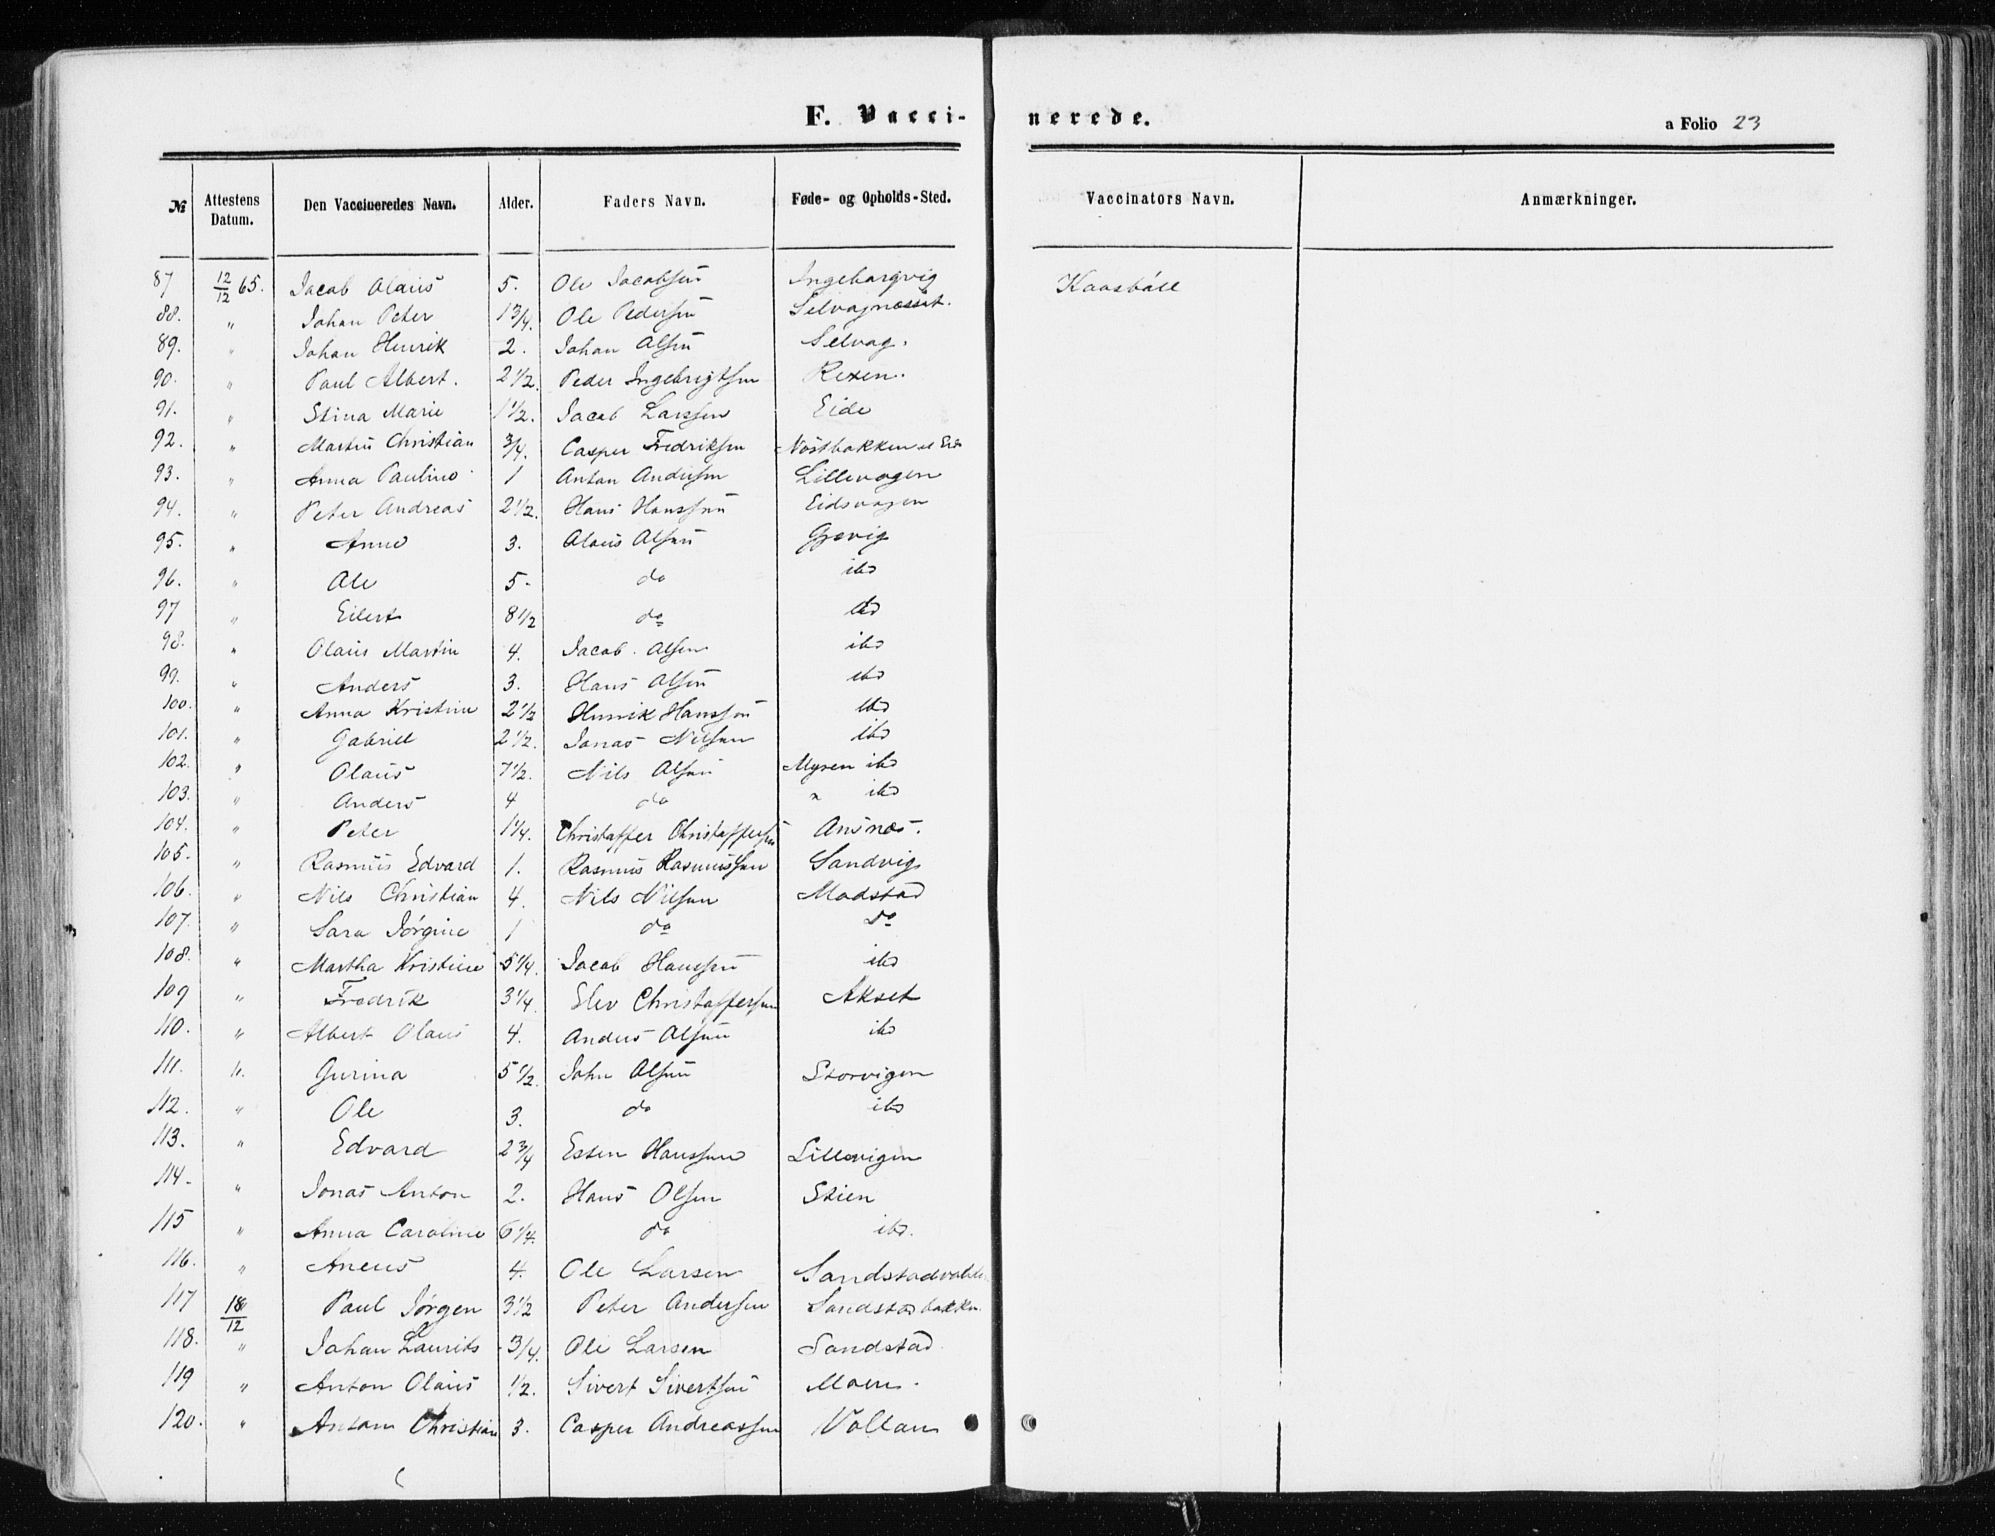 F. Vaccinerede.
a Folio 23
№ Attestens Datum. Den Vaccineredes Navn. Alder. Faders Navn. Føde- og Opholds-Sted. Vaccinators Navn. Anmærkninger.
87 12/12 65. Jacob Olaus 5. Ole Jacobsen Ingeborgvig
88. " Johan Peter 1 3/4. Ole Pedersen Selvagnesset.
89. " Johan Henrik 2. Johan Olsen Selvag.
90. " Paul Albert. 2 1/2. Peder Ingebrigtsen Rexen.
91. " Stina Marie 1 1/2. Jacob Larssen Eide
92. " Martin Christian 3/4. Casper Fredriksen Nöstbakken
93. " Anna Pauline 1 Anton Andersen Lillevagen
94. " Peter Andreas 2 1/2. Hans Hanssen Eidsvagen
95. " Anne 3. Olaus Olsen Gjevig
96. " Ole 5. do ibd
97 " Eilert 8 1/2 do ibd
98. " Olaus Martin 4. Jacob Olsen ibd
99. " Anders 3. Hans Olsen ibd
100. " Anna Kristine 2 1/2 Henrik Hanssen ibd
101. " Gabriel 2 1/2. Jonas Nilsen ibd
102. " Olaus 7 1/2. Nils Olsen Myren ibd
103. " Anders 4 do " ibd
104. " Peter 1 1/4. Christoffer Christoffersen Ansnes.
105. " Rasmus Edvard 1. Rasmus Rasmussen Sandvig
106. " Nils Christian 4. Nils Nilsen Madstad
107. " Sara Jørgine 1 do do
108. " Martha Kristine 5 1/4. Jacob Hanssen ibd
109 " Fredrik 3 1/4. Elev Christoffersen Akset
110. " Albert Olaus 4. Anders Olsen ibd
111. " Gurina 5 1/2. John Olsen Storvigen
112. " Ole 3. do ibd
113. " Edvard 2 3/4 Esten Hanssen Lillevigen
114. " Jonas Anton 2. Hans Olsen Stien
115 " Anna Caroline 6 1/4. do ibd.
116. " Aneus 4. Ole Larsen
117 18/12 Paul Jørgen 3 1/2 Peter Andersen Sandstadbakken
118. " Johan Laurits 3/4. Ole Larsen Sandstad
119 " Anton Olaus 1/2. Sivert Sivertsen Moen.
120. " Anton Christian 3. Casper Andreassen Vollan